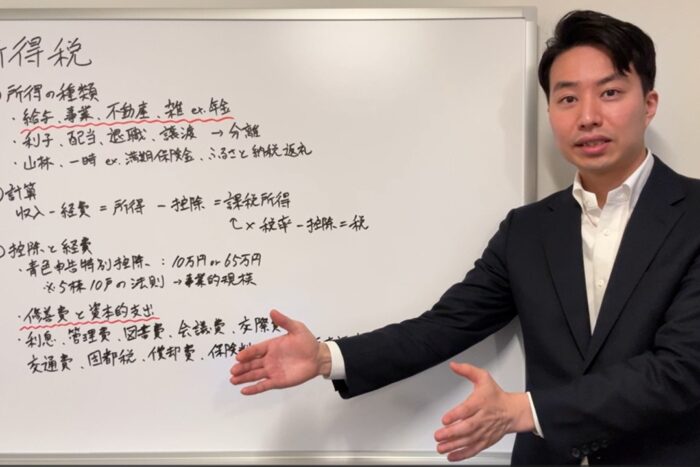 所得税
所得の種類
・給与、事業、不動産、雑 ex.年金
・利子、配当、退職、譲渡 → 分離
・山林、一時 ex.満期保険金、ふるさと納税返礼
計算
収入 - 経費 = 所得 - 控除 = 課税所得
↑× 税率 - 控除 = 税
控除と経費
・青色申告特別控除 : 10万円 or 65万円
※5棟10戸の法則 → 事業的規模
・修善費と資本的支出
・利息、管理費、図書費、会議費、交際
交通費、固都税、償却費、保険料